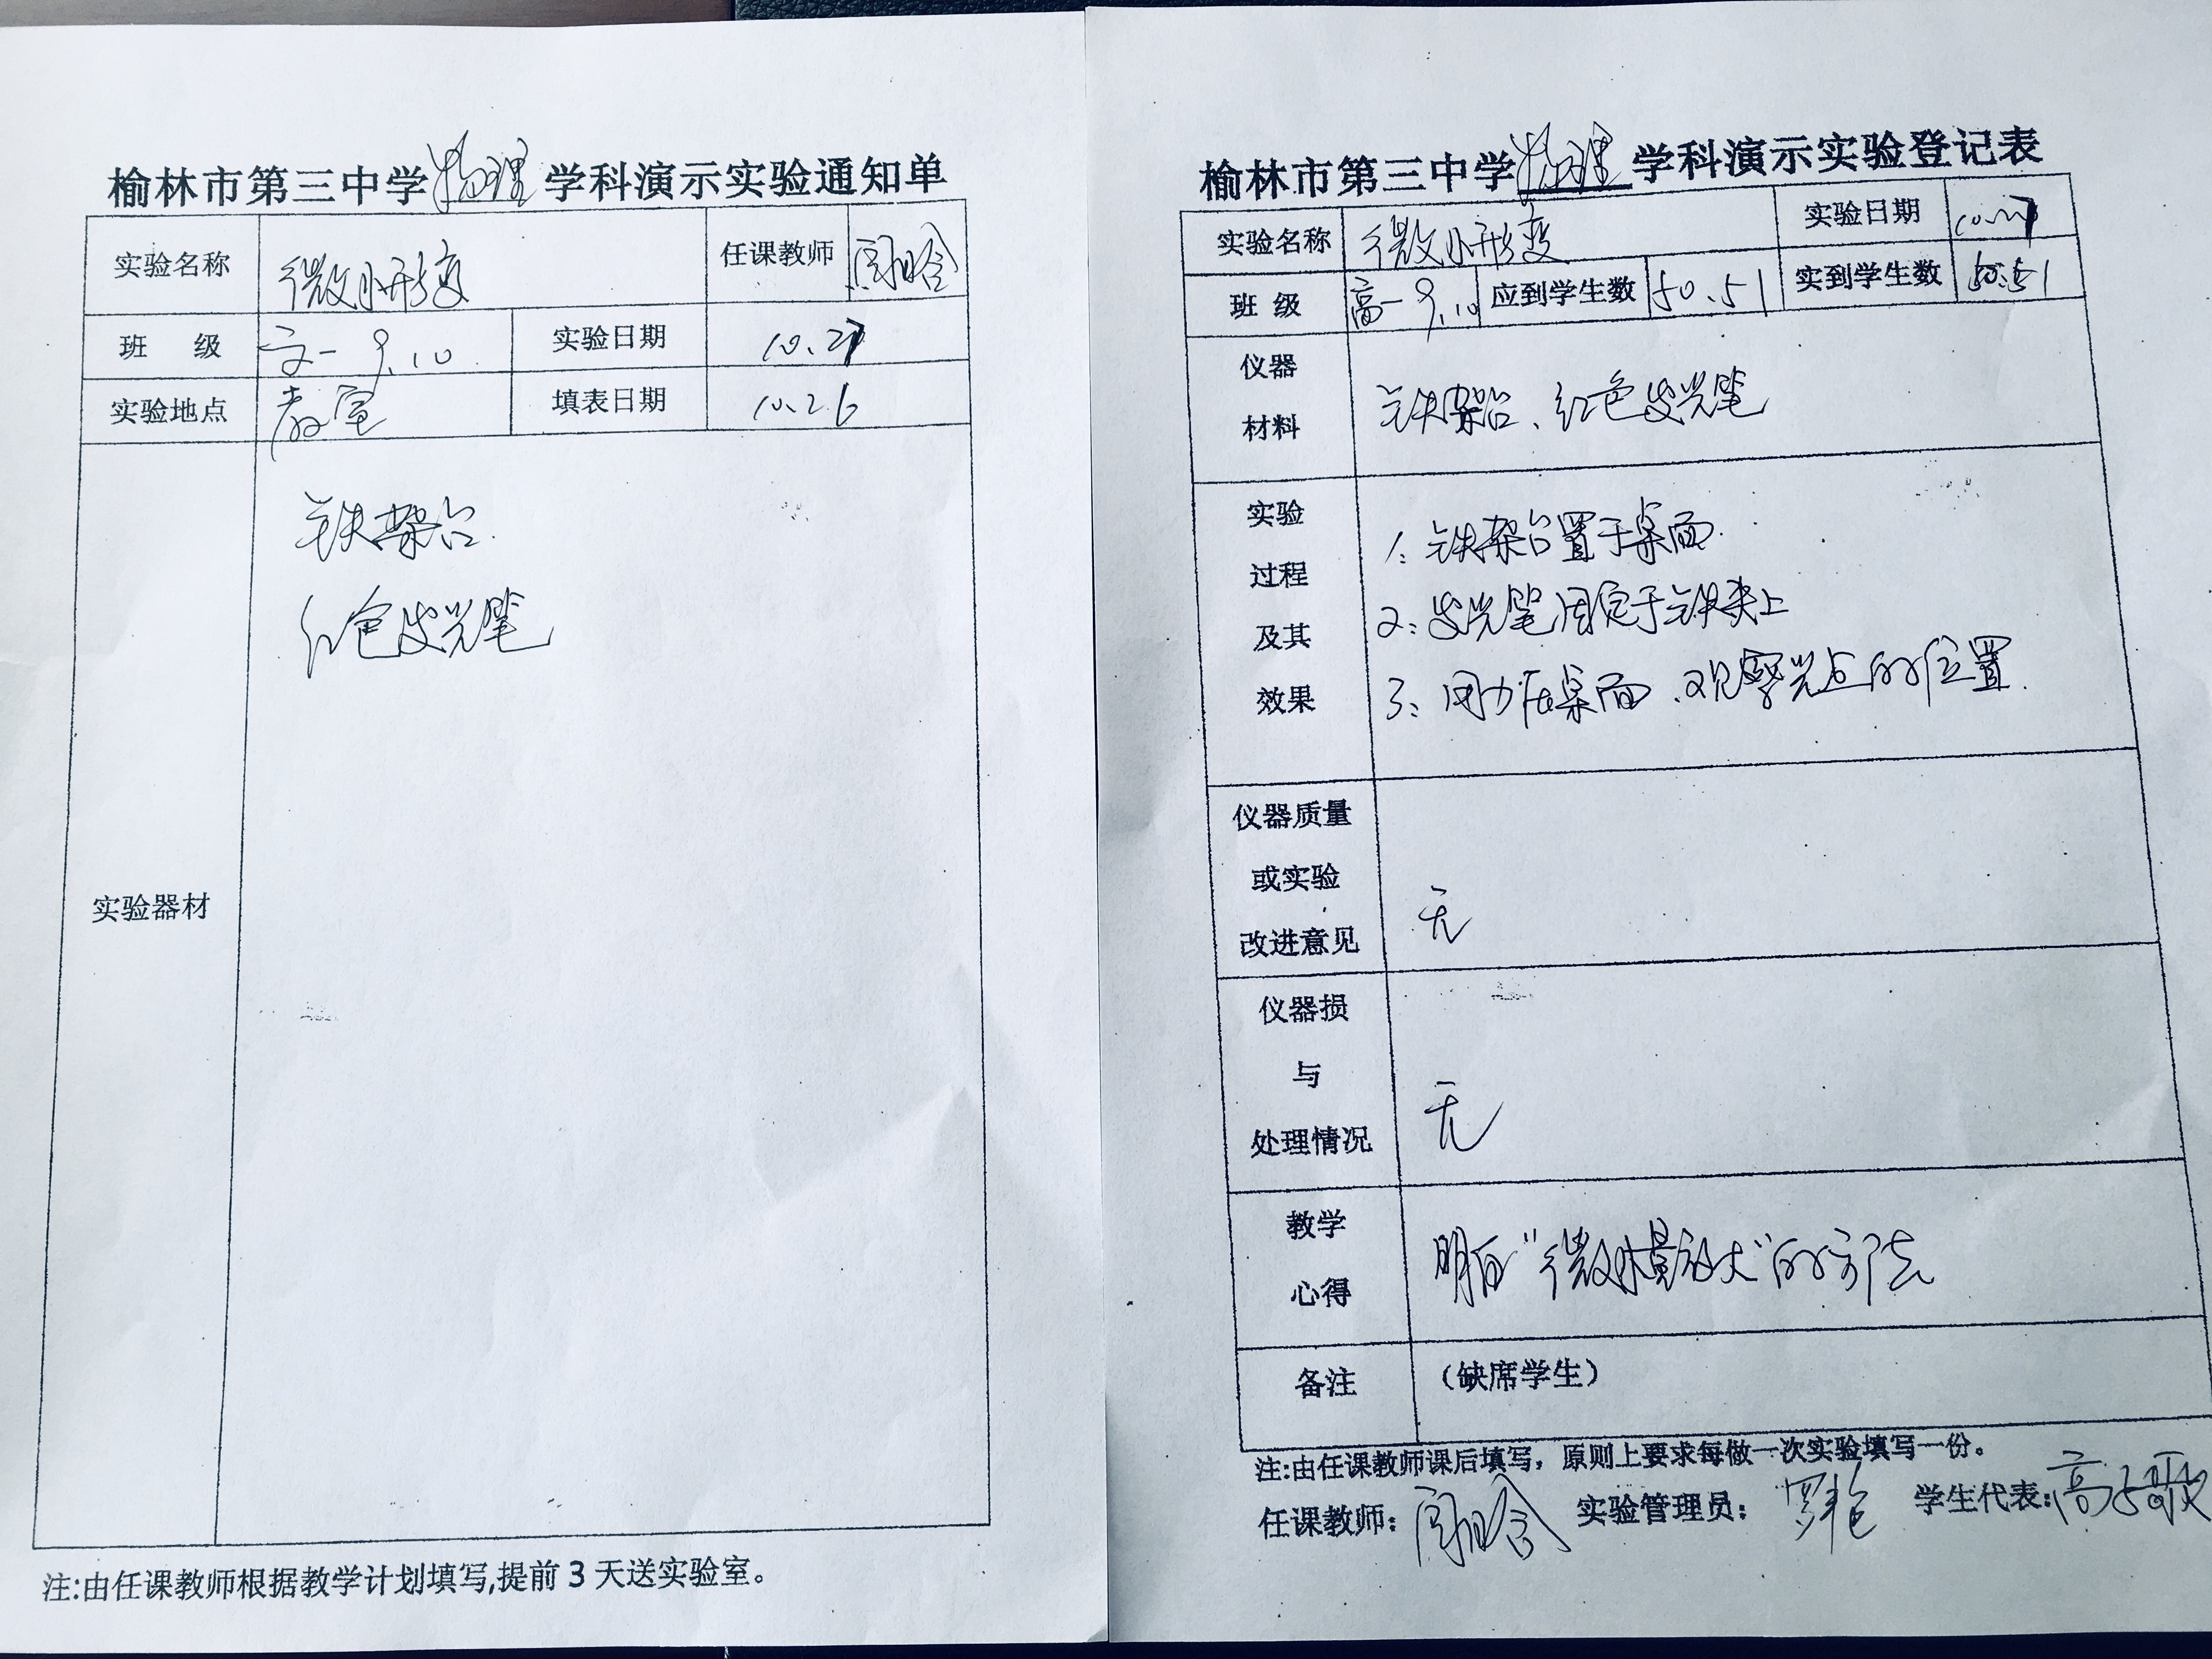 榆林市第三中学物理学科演示实验通知单
实验名称 微小形变 任课教师
班 级 高一 9.10 实验日期 10.27
实验地点 教室 填表日期 10.26
实验器材
铁架台
红色发光笔
注:由任课教师根据教学计划填写,提前3天送实验室。
榆林市第三中学物理学科演示实验登记表
实验名称 微小形变 实验日期 10.27
班 级 高一 9.10 应到学生数 50.51 实到学生数 50.51
仪器
材料
铁架台、红色发光笔
实验
过程
及其
效果
1: 铁架台置于桌面.
2: 发光笔固定于铁夹上
3: 用力压桌面,观察光点的位置.
仪器质量
或实验
改进意见
无
仪器损
与
处理情况
无
教学
心得
明白“微小量放大”的方法
备注 (缺席学生)
注:由任课教师课后填写,原则上要求每做一次实验填写一份。
任课教师: 实验管理员: 学生代表:高子歌